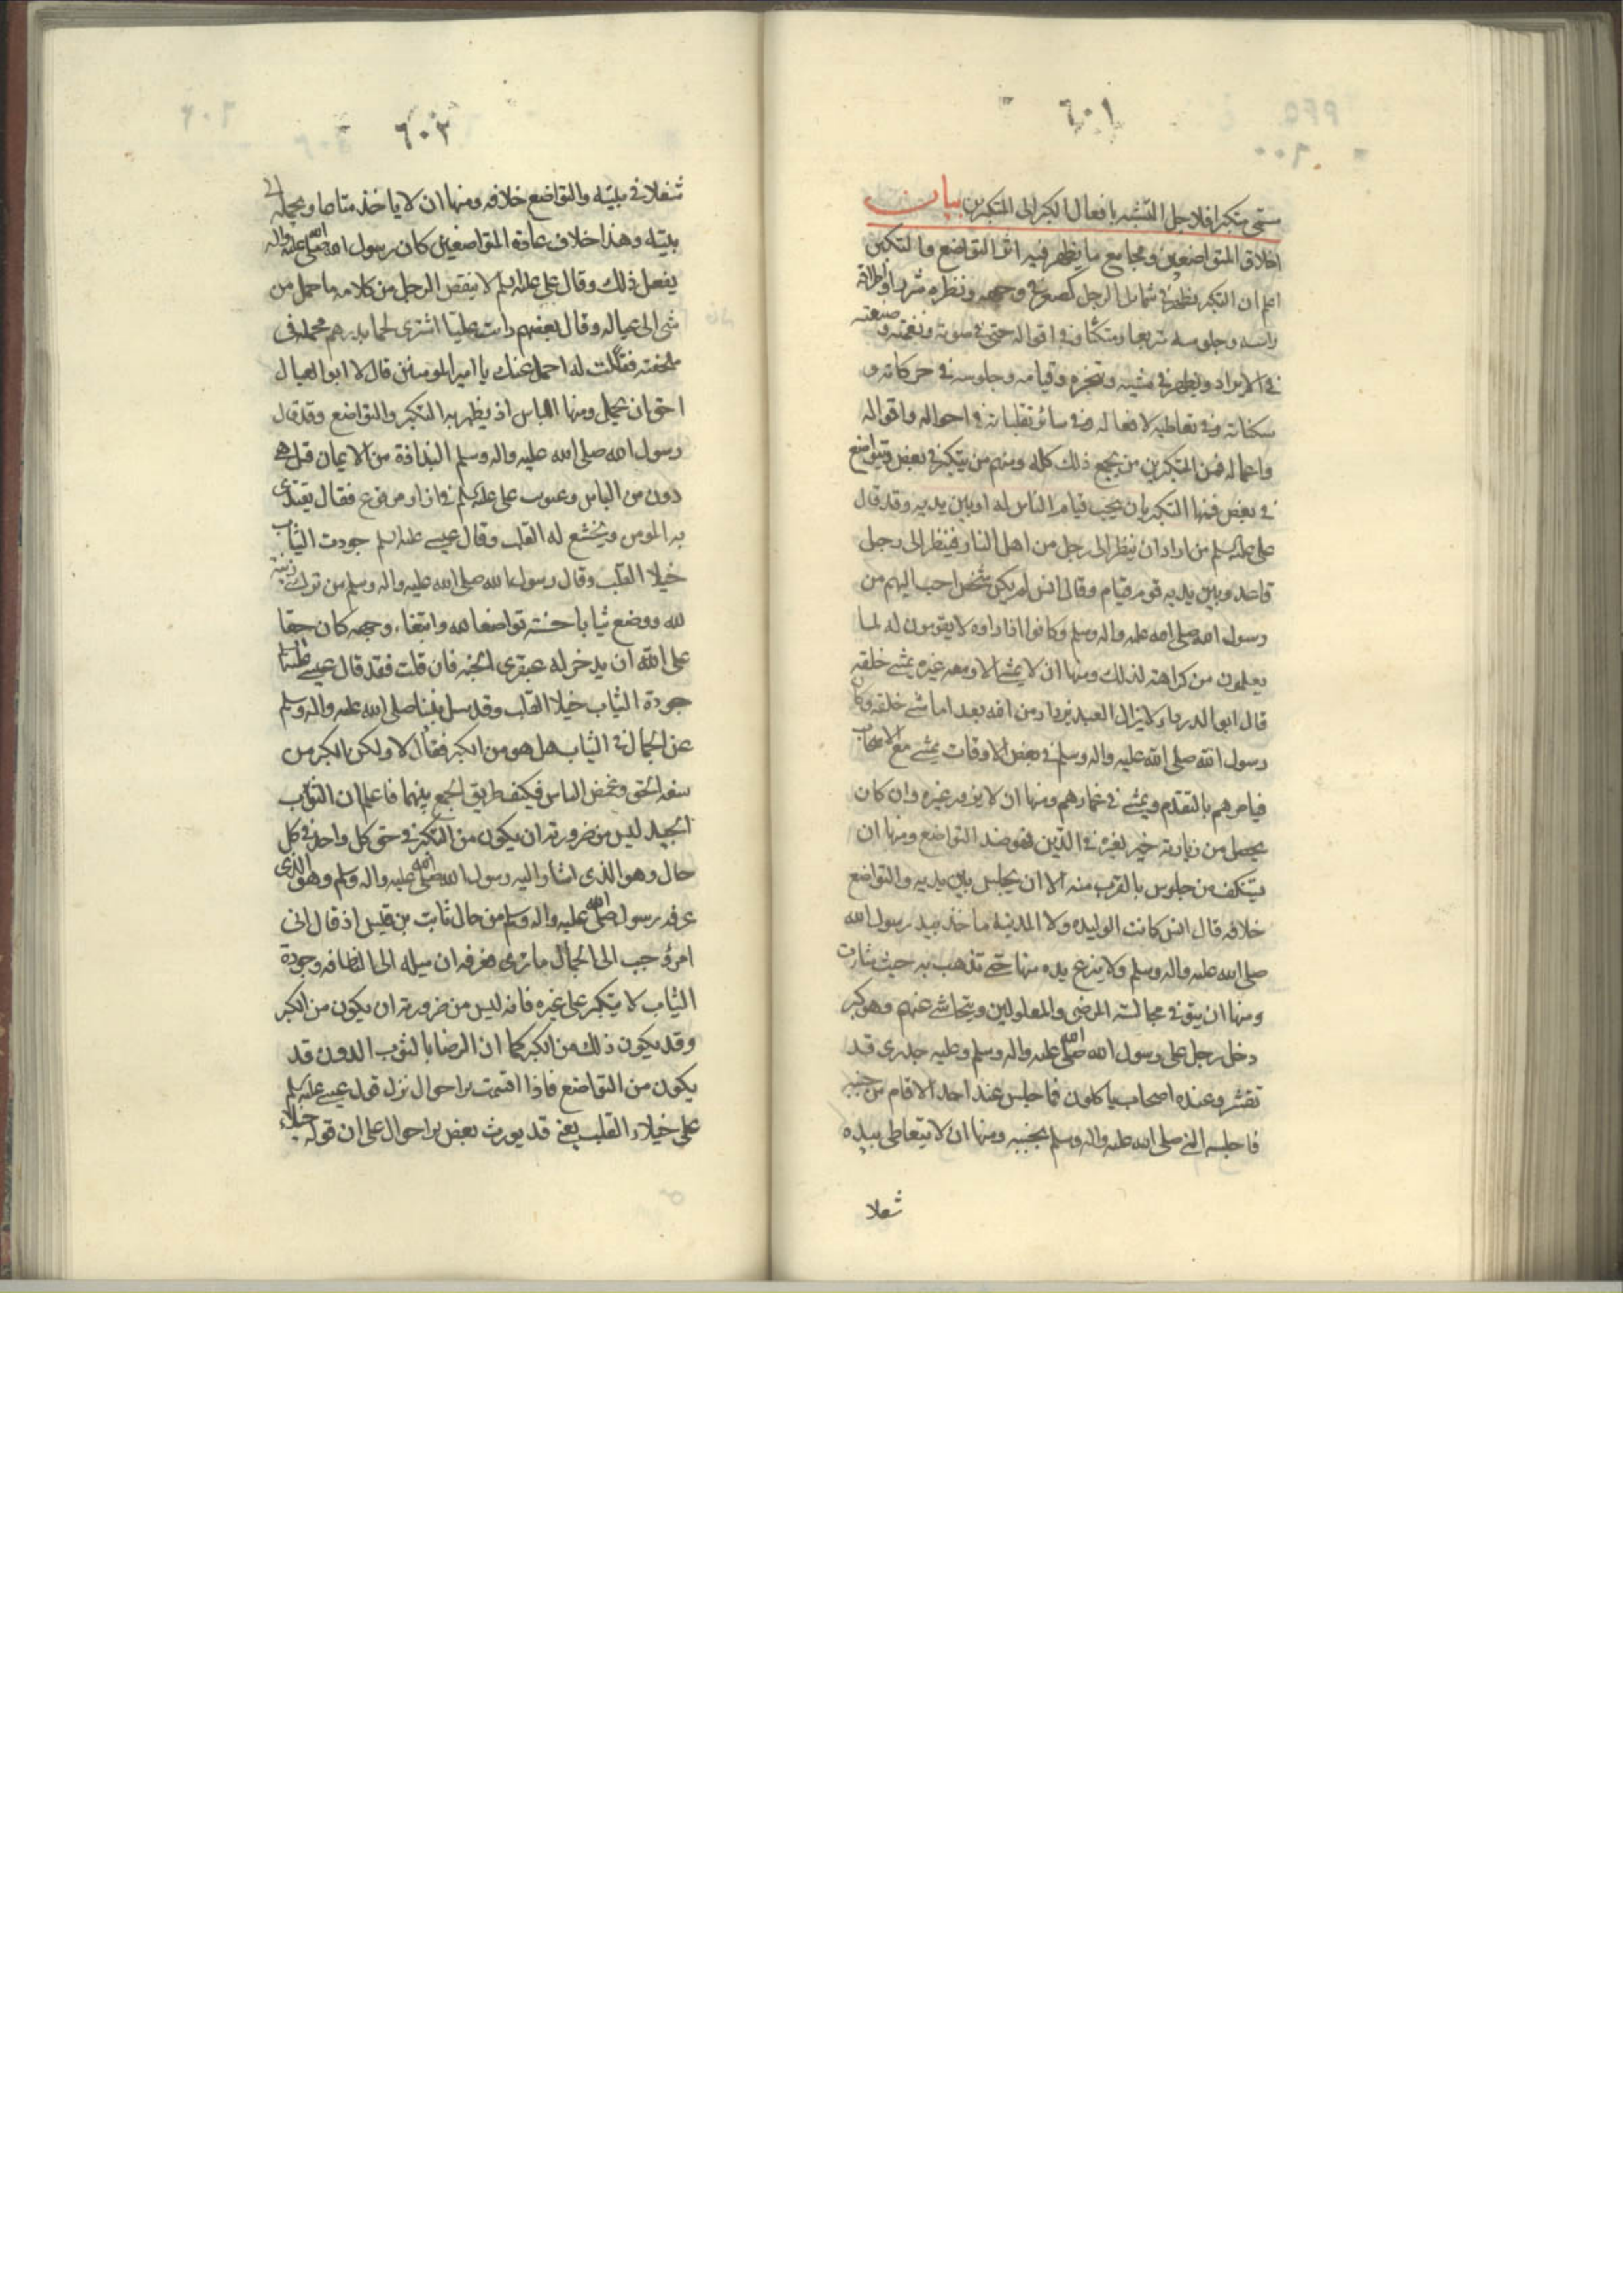 ٦٠١
سمى متكبرا فلاجل التشبه بافعال الكبر الى المتكبرين بيان
اخلاق المتواضعين ومجامع ما يظهر فيه اثر التواضع والتكبر
اعلم ان التكبر يظهر في شمايل الرجل كصعر في وجهه ونظره شزرا واطراقه
راسه وجلوسه متربعا ومتكئا وفي اقواله حتى في صوته ونغمته وصيغته
في الايراد ويظهر في مشيه وتبختره وقيامه وجلوسه في حركاته و
سكناته وفي تعاطيه لافعاله وفي سائر تقلباته في احواله واقواله
واعماله فمن المتكبرين من يجمع ذلك كله ومنهم من يتكبر في بعض ويتواضع
في بعض فمنها التكبر بان يحب قيام الناس له او بين يديه وقد قال
على عليه السلم من اراد ان ينظر الى رجل من اهل النار فينظر الى رجل
قاعد وبين يديه قوم قيام وقال انس لم يكن شخص احب اليهم من
رسول الله صلى الله عليه واله وسلم وكانوا اذا راوه لا يقومون له لما
يعلمون من كراهته لذلك ومنها ان لا يمشى الا ومعه غيره يمشى خلفه
قال ابو الدرداء لا يزال العبد يزداد من الله بعدا ما مشى خلفه وكان
رسول الله صلى الله عليه واله وسلم في بعض الاوقات يمشى مع الاصحاب
فيامرهم بالتقدم ويمشى في غمارهم ومنها ان لا يزور غيره وان كان
يحصل من زيارته خير لغيره في الدين فهو ضد التواضع ومنها ان
يستنكف من جلوس بالقرب منه الا ان يجلس بين يديه والتواضع
خلافه قال انس كانت الوليده ولا المدينة تاخذ بيد رسول الله
صلى الله عليه واله وسلم ولا ينزع يده منها حتى تذهب به حيث شارت
ومنها ان يتوقى مجالسته المرضى والمعلولين ويتحاشى عنهم وهو كبر
دخل رجل على رسول الله صلى الله عليه واله وسلم وعليه جدرى قد
تقشر وعنده اصحاب ياكلون فما جلس عند احد الا قام من جنبه
فاجلسه النبي صلى الله عليه واله وسلم بجنبه ومنها ان لا يتعاطى بيده
شغلا
٦٠٢
شغلا في بيته والتواضع خلافه ومنها ان لا ياخذ متاعا ويحمله الى
بيته وهذا خلاف عادة المتواضعين كان رسول الله صلى الله عليه واله
يفعل ذلك وقال على عليه السلم لا ينقص الرجل من كلامه ما حمل من
شى الى عياله وقال بعضهم رايت عليا اشترى لحما بدرهم فحمله في
ملحفته فقلت له احمل عنك يا امير المومنين قال لا ابو العيال
احق ان يحمل ومنها اللباس اذ يظهر به التكبر والتواضع وقد قال
رسول الله صلى الله عليه واله وسلم البذاذة من الايمان قيل هى
دون من الباس وعوتب على عليه السلم في ازار مرقوع فقال يقتدى
به المومن ويخشع له القلب وقال عيسى عليه السلم جودت الثياب
خيلا القلب وقال رسول الله صلى الله عليه واله وسلم من ترك زينة
لله ووضع ثيابا حسنة تواضعا لله وابتغاء وجهه كان حقا
على الله ان يدخر له عبقرى الجنه فان قلت فقد قال عيسى عليه السلام
جودة الثياب خيلا القلب وقد سئل نبينا صلى الله عليه واله وسلم
عن الجمال في الثياب هل هو من الكبر فقال لا ولكن الكبر من
سفه الحق وغمض الناس فكيف طريق الجمع بينهما فاعلم ان الثوب
الجيد ليس من ضرورته ان يكون من التكبر في حق كل واحد في كل
حال وهو الذى اشار اليه رسول الله صلى الله عليه واله وسلم وهو الذى
عرفه رسول صلى الله عليه واله وسلم من حال ثابت بن قيس اذ قال انى
امرؤ حبب الى الجمال ما ترى فعرفه ان ميله الى النظافه وجودة
الثياب لا يتكبر على غيره فانه ليس من ضرورته ان يكون من الكبر
وقد يكون ذلك من الكبر كما ان الرضا بالثوب الدون قد
يكون من التواضع فاذا اقسمت براحوال نزل قول عيسى عليه السلم
على خيلاء القلب يعنى قد يورث بعض براحوال على ان قوله خيلاء